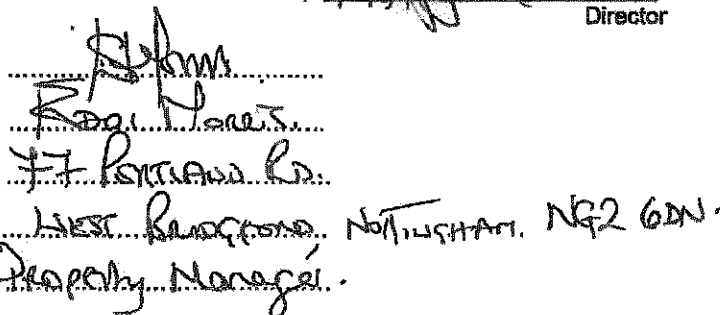 Director
Morris.
77 Portland Rd.
West Bridgford. Nottingham. NG2 6DN.
Property Manager.